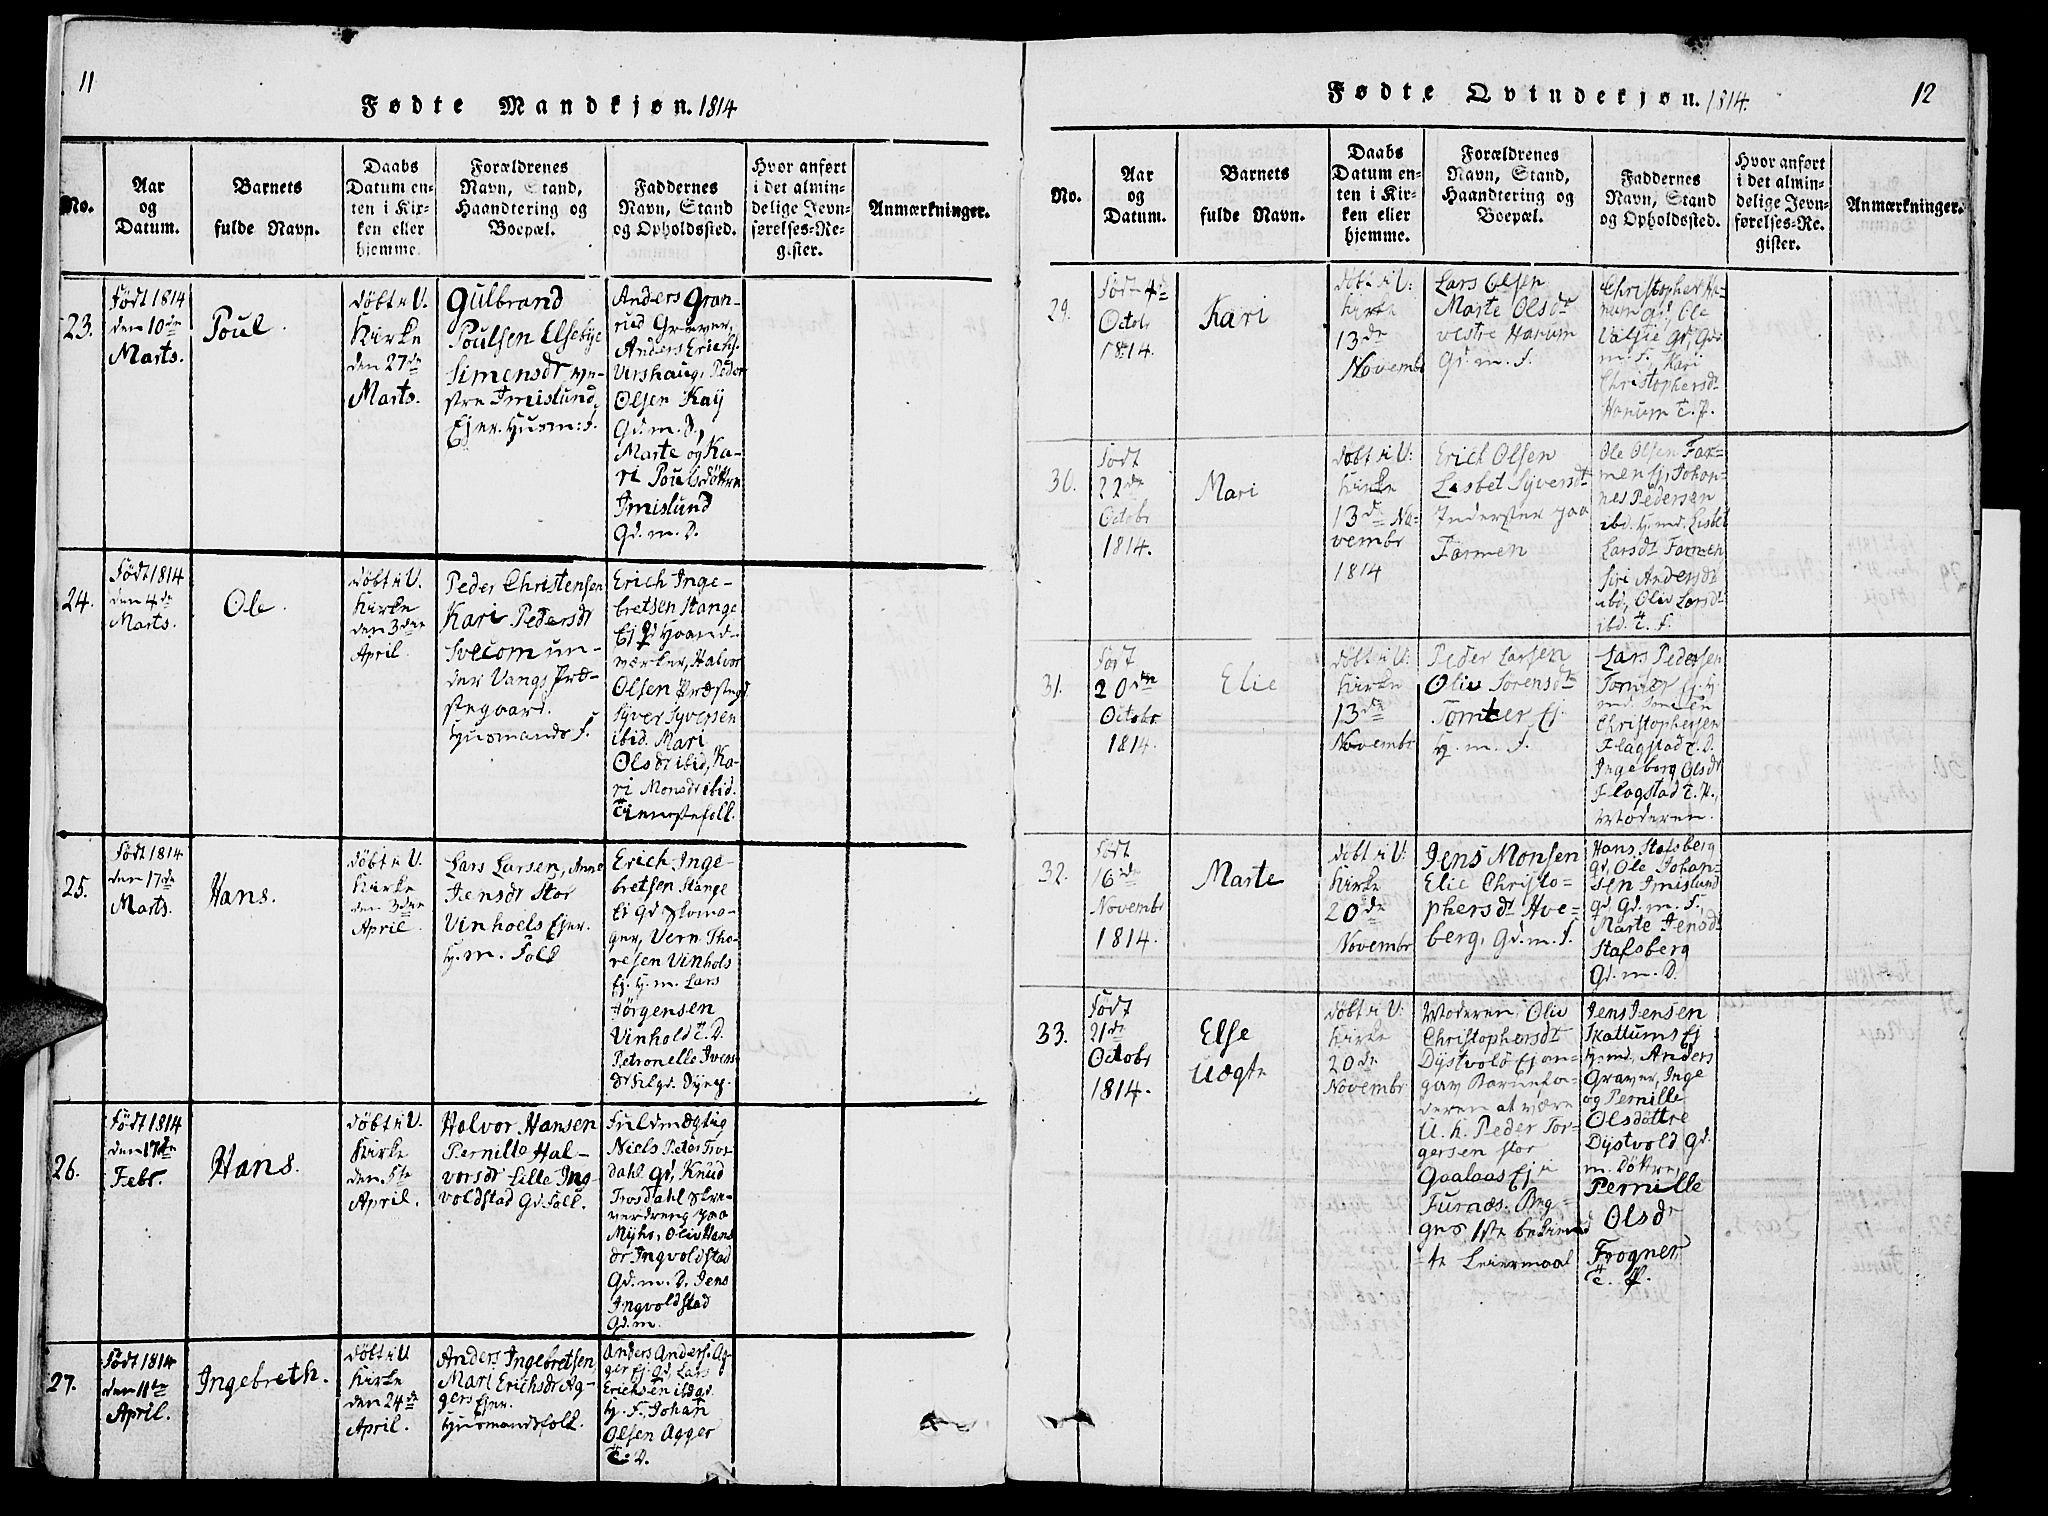 11
Fødte Mandkjøn. 1814
No.
Aar
og
Datum.
Barnets
fulde Navn.
Daabs
Datum en-
ten i Kir-
ken eller
hjemme.
Forældrenes
Navn, Stand,
Haandtering og
Boepæl.
Faddernes
Navn, Stand
og Opholdssted.
Hvor anført
i det almin-
delige Jevn-
førelses-Re-
gister.
Anmærkninger.
23.
Født 1814
den 10de
Marts.
Poul.
døbt i V.
Kirke
den 27de
Marts.
Gulbrand
Poulsen Elsebye
Simensdr ve-
stre Imislund,
Ejer. Husm: f.
Anders Gran-
rud Graver,
Anders Erichs.
Virshaug, Peder
Olsen Kaij
Gd. m. D,
Marte og Ka-
ri Poulsdøttre
Imislund
Gd. m. D.
24.
Født 1814
den 4de
Marts.
Ole.
døbt i V.
Kirke
den 3die
April.
Peder Christensen
Kari Pedersdr
Svecom un-
der Vangs Præ-
stegaard.
Husmands f.
Erich Inge-
bretsen Stange
Ej Gd Haand-
værker, Halvor
Olsen Præstegd
Syver Syversen
ibid. Mari
Olsdr ibid, Ka-
ri Monsdr ibid.
Tienestefolk.
25.
Født 1814
den 17de
Marts.
Hans.
døbt i V.
Kirke
den 3die
April.
Lars Larsen, Anne
Jensdr Stor
Vinhols Ejer.
H. m. Folk
Erich Inge-
bretsen Stange
Ej Gd Skoma-
ger, Vern Tho-
resen Vinhols
Ej. H. m. Lars
Jørgensen
Vinhold T. D.
Petronelle Ivers
26.
Født 1814
den 17de
Febr.
Hans.
døbt i V.
Kirke
den 5te
April.
Halvor Hansen
Pernille Hal-
vorsdr Lille Ing-
voldstad Gd Folk.
Fuldmægtig
Niels Peter Tros-
dahl Gd, Knud
Trosdahl Skri-
verdreng paa
Myhr, Oliv Hans
dr Ingvoldstad
Gd. m. D. Jens
Ingvoldstad
Gd. m.
27.
Født 1814
den 11te
April.
Ingebreth.
døbt i V
Kirke
den 24de
April.
Anders Ingebretsen
Mari Erichsdr Ag-
gers Ejer.
Husmandsfolk.
Anders Anders. Ag-
ger Ej Gd, Lars
Erichsen ibd gd.
H. F., Johan
Olsen Agger
T. D.
12
Fødte Qvindekjøn. 1814.
No.
Aar
og
Datum.
Barnets
fulde Navn.
Daabs
Datum en-
ten i Kir-
ken eller
hjemme.
Forældrenes
Navn, Stand,
Haandtering og
Boepæl.
Faddernes
Navn, Stand
og Opholdssted.
Hvor anført
i det almin-
delige Jevn-
førelses-Re-
gister.
Anmærkninger.
29.
Født 4de
Octobr
1814.
Kari
døbt i V:
Kirke
13de
Novembr
Lars Olsen
Marte Olsdr
vestre Hanum
Gd. m. f.
Christopher Ha-
num gd, Ole
m. f. Kari
Christophersdr
Hanum T. P.
30.
Født
22de
Octobr
1814.
Mari
døbt i V:
Kirke
13de No-
vembr
1814
Erich Olsen
Lisbet Syversdr
Inderster paa
Farmen
Ole Olsen Far-
men Ej, Johan-
nes Pedersen
ibd. H. md. Lisbet
Larsdr Farmen
Siri Andersdr
ibd, Oliv Larsdr
ibd. T. f.
31.
Født
20de
Octobr.
1814.
Elie
døbt i V:
Kirke
13de
Novembr
Peder Larsen
Oliv Sørensdr
Tomter Ej.
H. m. f.
Lars Pedersen
Tomter Ej H
Christophersen
Flagstad T. D.
Ingeborg Olsdr
Flagstad T. P.,
Moderen.
32.
Født
16de
Novembr
1814.
Marte
døbt i V:
Kirke
20de
Novembr
Jens Monsen
Elie Christo-
phersdr Hve-
berg, Gd. m. f.
Hans Stafsberg
gd, Ole Johan-
sen Imislund
gd, Gd. m. f,
Marte Jensdr
Stafsberg
Gd. m. D.
33.
Født
21de
Octobr
1814.
Else
Uægte
døbt i V:
Kirke
20de
Novembr
Moderen, Oliv
Christophersdr
Dystvold Ej an-
gav Barnefa-
deren at være
U. k. Peder Tor-
gersen stor
Gaalaas Ej i
Furnæs. Beg-
ges 1ste bekiend-
te Leiermaal
Jens Jensen
Skattums Ej
H. md, Anders
Graver, Inge
og Pernille
Olsdøttre
Dystvold Gd.
m. Døttre,
Pernille
Olsdr
Frogner
T. P.